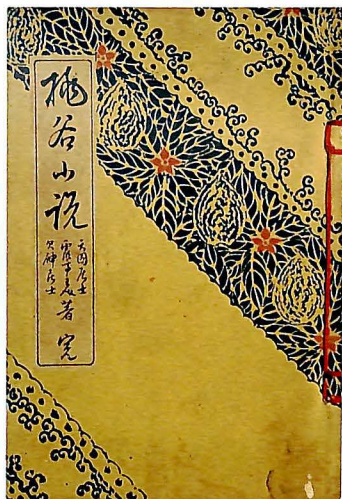 桃谷小説
天囚居士
霞亭主人
欠伸居士
著 完